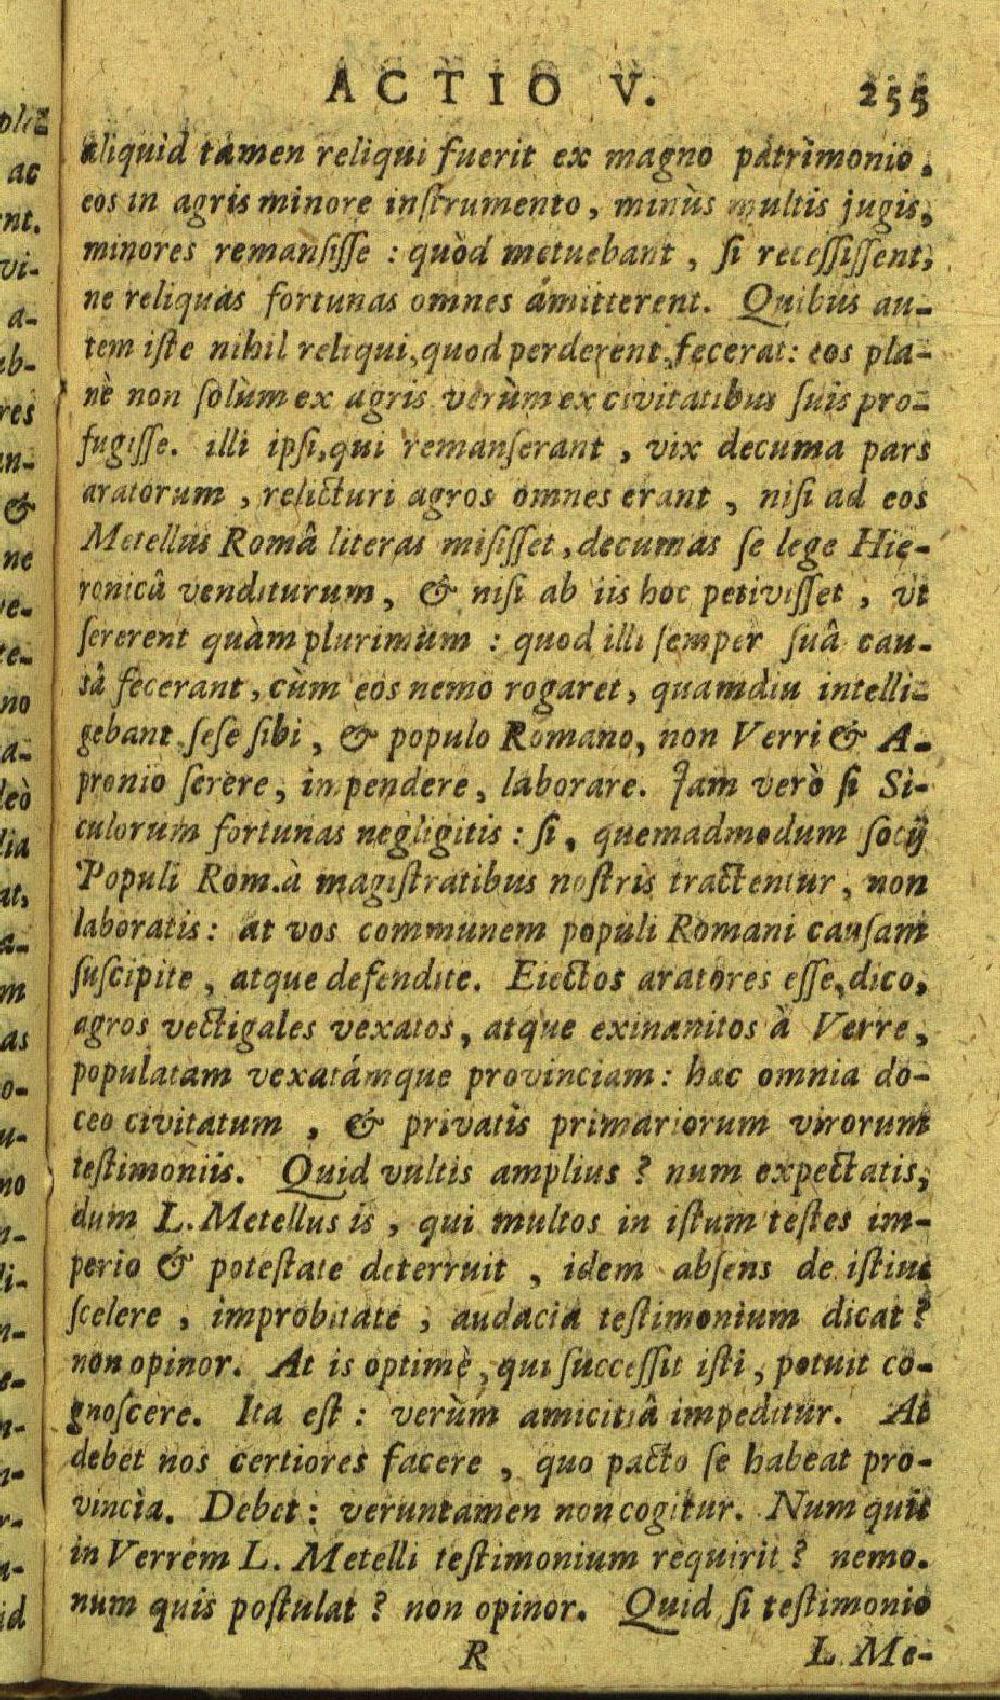 ACTIO V. 255
aliquid tamen reliqui fuerit ex magno patrimonio,
eos in agris minore inſtrumento, minùs multis jugis,
minores remanſiſſe : quòd metuebant, ſi receſſiſſent,
ne reliquas fortunas omnes amitterent. Quibus au-
tem iſte nihil reliqui, quod perderent, fecerat: eos pla-
nè non ſolùm ex agris verùm ex civitatibus ſuis pro-
fugiſſe. illi ipſi, qui remanſerant, vix decuma pars
aratorum, relicturi agros omnes erant, niſi ad eos
Metellus Româ literas miſiſſet, decumas ſe lege Hie-
ronicâ venditurum, & niſi ab iis hoc petiviſſet, vt
ſererent quàm plurimum : quod illi ſemper ſuâ cau-
sâ fecerant, cùm eos nemo rogaret, quamdiu intelli-
gebant ſeſe ſibi, & populo Romano, non Verri & A-
pronio ſerere, impendere, laborare. Jam verò ſi Si-
culorum fortunas negligitis : ſi, quemadmodum ſocij
Populi Rom. à magiſtratibus noſtris tractentur, non
laboratis: at vos communem populi Romani cauſam
ſuſcipite, atque defendite. Eiectos aratores eſſe, dico,
agros vectigales vexatos, atque exinanitos à Verre,
populatam vexatámque provinciam: hæc omnia do-
ceo civitatum, & privatis primariorum virorum
teſtimoniis. Quid vultis amplius? num expectatis,
dum L. Metellus is, qui multos in iſtum teſtes im-
perio & poteſtate deterruit, idem abſens de iſtius
ſcelere, improbitate, audacia teſtimonium dicat?
non opinor. At is optimè, qui ſucceſſit iſti, potuit co-
gnoſcere. Ita eſt : verùm amicitiâ impeditur. At
debet nos certiores facere, quo pacto ſe habeat pro-
vincia. Debet: veruntamen non cogitur. Num quis
in Verrem L. Metelli teſtimonium requirit? nemo.
num quis poſtulat? non opinor. Quid ſi teſtimonio
R L. Me-